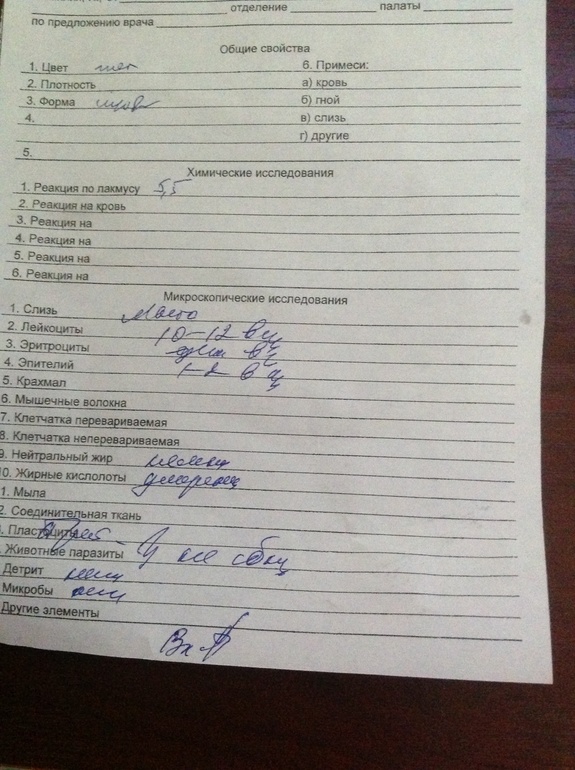 отделение палаты
по предложению врача
Общие свойства
1. Цвет
6. Примеси:
2. Плотность
а) кровь
3. Форма
б) гной
4.
в) слизь
г) другие
5.
Химические исследования
1. Реакция по лакмусу 5,5
2. Реакция на кровь
3. Реакция на
4. Реакция на
5. Реакция на
6. Реакция на
Микроскопические исследования
1. Слизь много
2. Лейкоциты 10-12 в
3. Эритроциты в
4. Эпителий 1-2 в
5. Крахмал
6. Мышечные волокна
7. Клетчатка перевариваемая
8. Клетчатка неперевариваемая
9. Нейтральный жир
10. Жирные кислолоты
1. Мыла
2. Соединительная ткань
Животные паразиты
Детрит
Микробы
Другие элементы